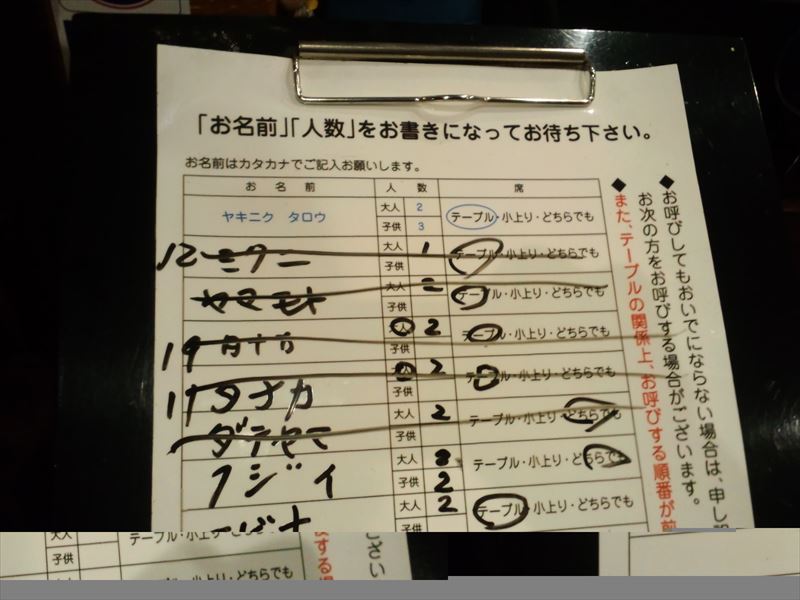 「お名前」「人数」をお書きになってお待ち下さい。
お名前はカタカナでご記入お願いします。
お名前 人数 席
ヤキニク タロウ 大人 2 子供 3 テーブル・小上り・どちらでも
12 ミクニ 大人 1 子供 テーブル・小上り・どちらでも
ヤマモト 大人 2 子供 テーブル・小上り・どちらでも
19 大人 2 子供 テーブル・小上り・どちらでも
11 タナカ 大人 2 子供 テーブル・小上り・どちらでも
大人 2 子供 テーブル・小上り・どちらでも
フジイ 大人 3 子供 2 テーブル・小上り・どちらでも
大人 2 子供 テーブル・小上り・どちらでも
◆お呼びしてもおいでにならない場合は、申し訳
お次の方をお呼びする場合がございます。
◆また、テーブルの関係上、お呼びする順番が前
大人 テーブル・小上り・どちらでも
子供
大人 テーブル・小上り・どちらでも
する場
ござい